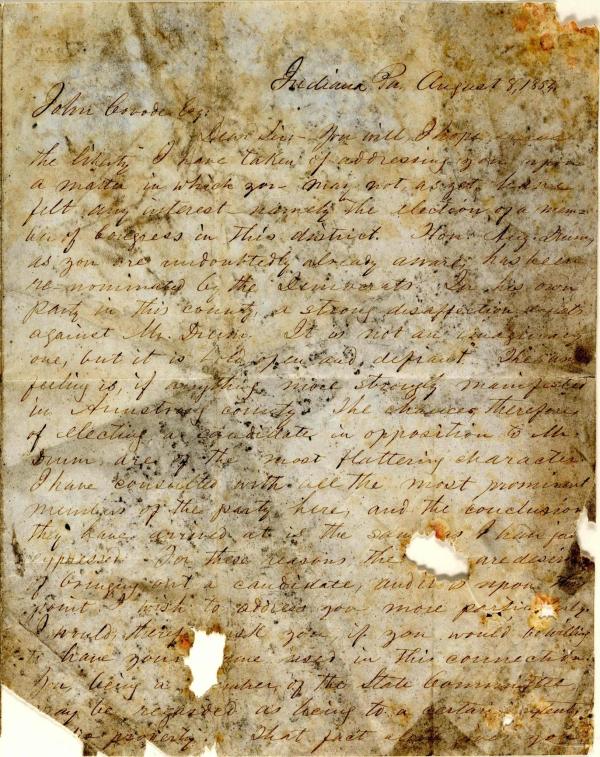 Indiana Pa. August 8, 1854
John Covode Esq:
Dear Sir - You will I hope excuse
the liberty I have taken of addressing you upon
a matter in which you may not as yet have
felt any interest - namely the election of a mem-
ber of Congress in this district. Hon. Aug. Drum,
as you are undoubtedly already aware, has been
re-nominated by the Democrats. In his own
party in this county, a strong disaffection exists
against Mr. Drum. It is not an
one, but it is bold, open and defiant. The same
feeling is if anything more strongly manifested
in Armstrong county. The chances therefore
of electing a candidate in opposition to Mr.
Drum are of the most flattering character.
I have consulted with all the most prominent
members of the party here, and the conclusion
they have arrived at is the same as I have just
expressed. For these reasons they are desirous
of bringing out a candidate, and it is upon this
point I wish to address you more particularly.
I would, therefore ask you if you would be willing
to have your name used in this connection.
being a member of the State Committee
may be regarded as being to a certain extent
property. That fact alone gives you